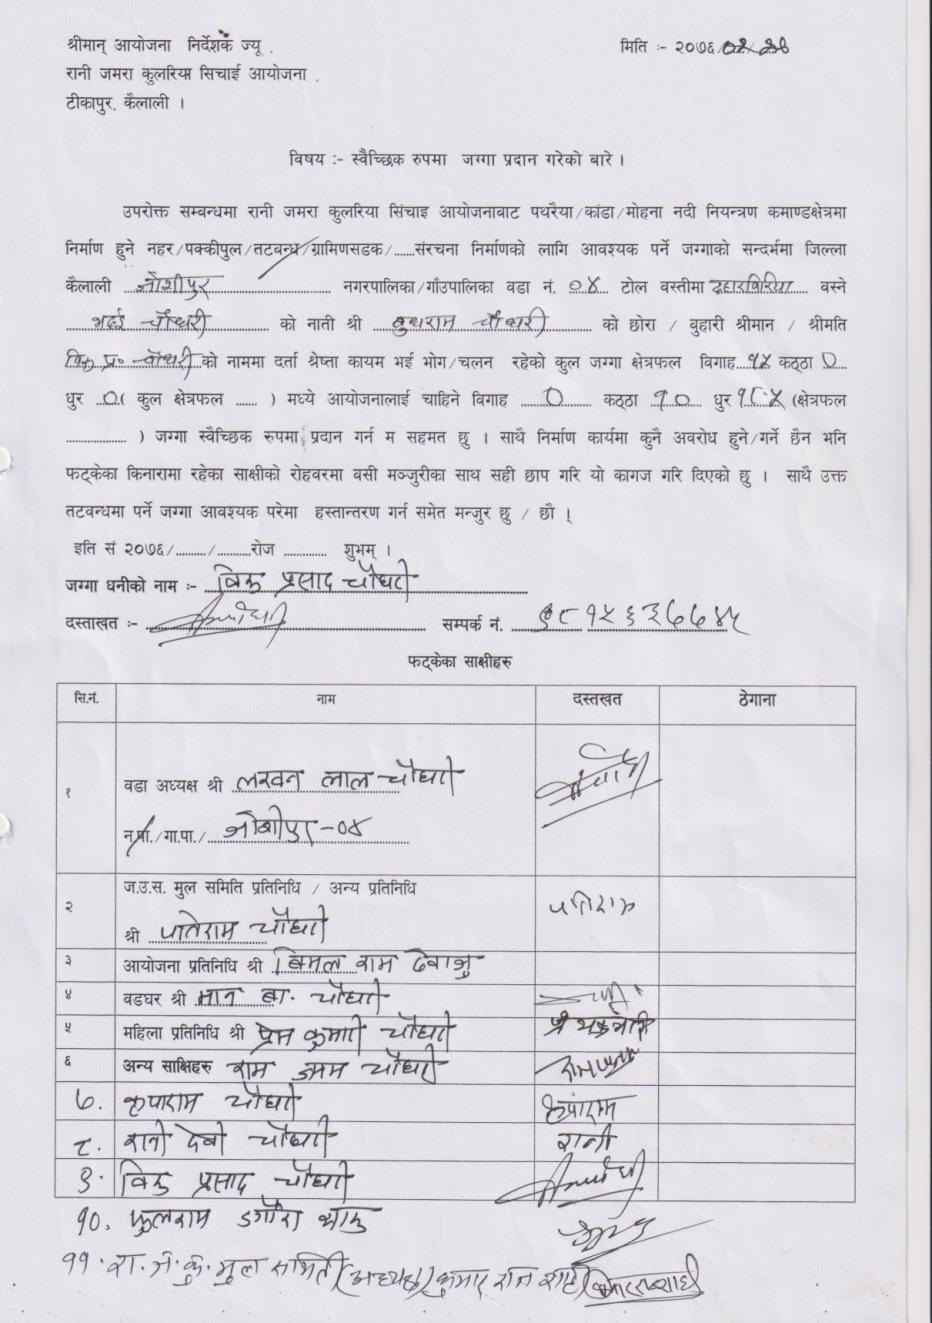 श्रीमान् आयोजना निर्देशक ज्यू .
मिति :- २०७६/०२/२७
रानी जमरा कुलरिया सिंचाई आयोजना .
टीकापुर, कैलाली ।
विषय :- स्वैच्छिक रुपमा जग्गा प्रदान गरेको बारे ।
उपरोक्त सम्बन्धमा रानी जमरा कुलरिया सिंचाइ आयोजनाबाट पथरैया/कांडा/मोहना नदी नियन्त्रण कमाण्डक्षेत्रमा
निर्माण हुने नहर/पक्कीपुल/तटबन्ध/ग्रामिणसडक/......संरचना निर्माणको लागि आवश्यक पर्ने जग्गाको सन्दर्भमा जिल्ला
कैलाली जोशीपुर नगरपालिका/गाँउपालिका वडा नं. ०४ टोल वस्तीमा वस्ने
भदई चौधरी को नाती श्री बुधराम चौधरी को छोरा / बुहारी श्रीमान / श्रीमति
विक्रु प्र० चौधरी को नाममा दर्ता श्रेष्ता कायम भई भोग/चलन रहेको कुल जग्गा क्षेत्रफल विगाह १४ कठ्ठा ०
धुर ०( कुल क्षेत्रफल ...... ) मध्ये आयोजनालाई चाहिने विगाह ० कठ्ठा १० धुर १८.५ (क्षेत्रफल
............... ) जग्गा स्वैच्छिक रुपमा प्रदान गर्न म सहमत छु । साथै निर्माण कार्यमा कुनै अवरोध हुने/गर्ने छैन भनि
फट्केका किनारामा रहेका साक्षीको रोहवरमा बसी मञ्जुरीका साथ सही छाप गरि यो कागज गरि दिएको छु । साथै उक्त
तटवन्धमा पर्ने जग्गा आवश्यक परेमा हस्तान्तरण गर्न समेत मन्जुर छु / छौ ।
इति सं २०७६/......../.........रोज ............ शुभम् ।
जग्गा धनीको नाम :- विक्रु प्रसाद चौधरी
दस्ताखत :- सम्पर्क नं. ९८१५६३६७७४५
फट्केका साक्षीहरु
सि.नं. नाम दस्तखत ठेगाना
१ वडा अध्यक्ष श्री लखन लाल चौधरी
न.पा./गा.पा./ जोशीपुर-०४
ज.उ.स. मुल समिति प्रतिनिधि / अन्य प्रतिनिधि
२ श्री पातेराम चौधरी पतिराम
३ आयोजना प्रतिनिधि श्री बिमल राम
४ वडघर श्री मान बा. चौधरी
५ महिला प्रतिनिधि श्री प्रेम कुमारी चौधरी
६ अन्य साक्षिहरु राम चौधरी
७. कृपाराम चौधरी कृपाराम
८. रानी देवी चौधरी रानी
९. विक्रु प्रसाद चौधरी
१०. फुलराम डगौरा थारु
११. रा.ज.कु. मुल समिती (अध्यक्ष) कुमार राज